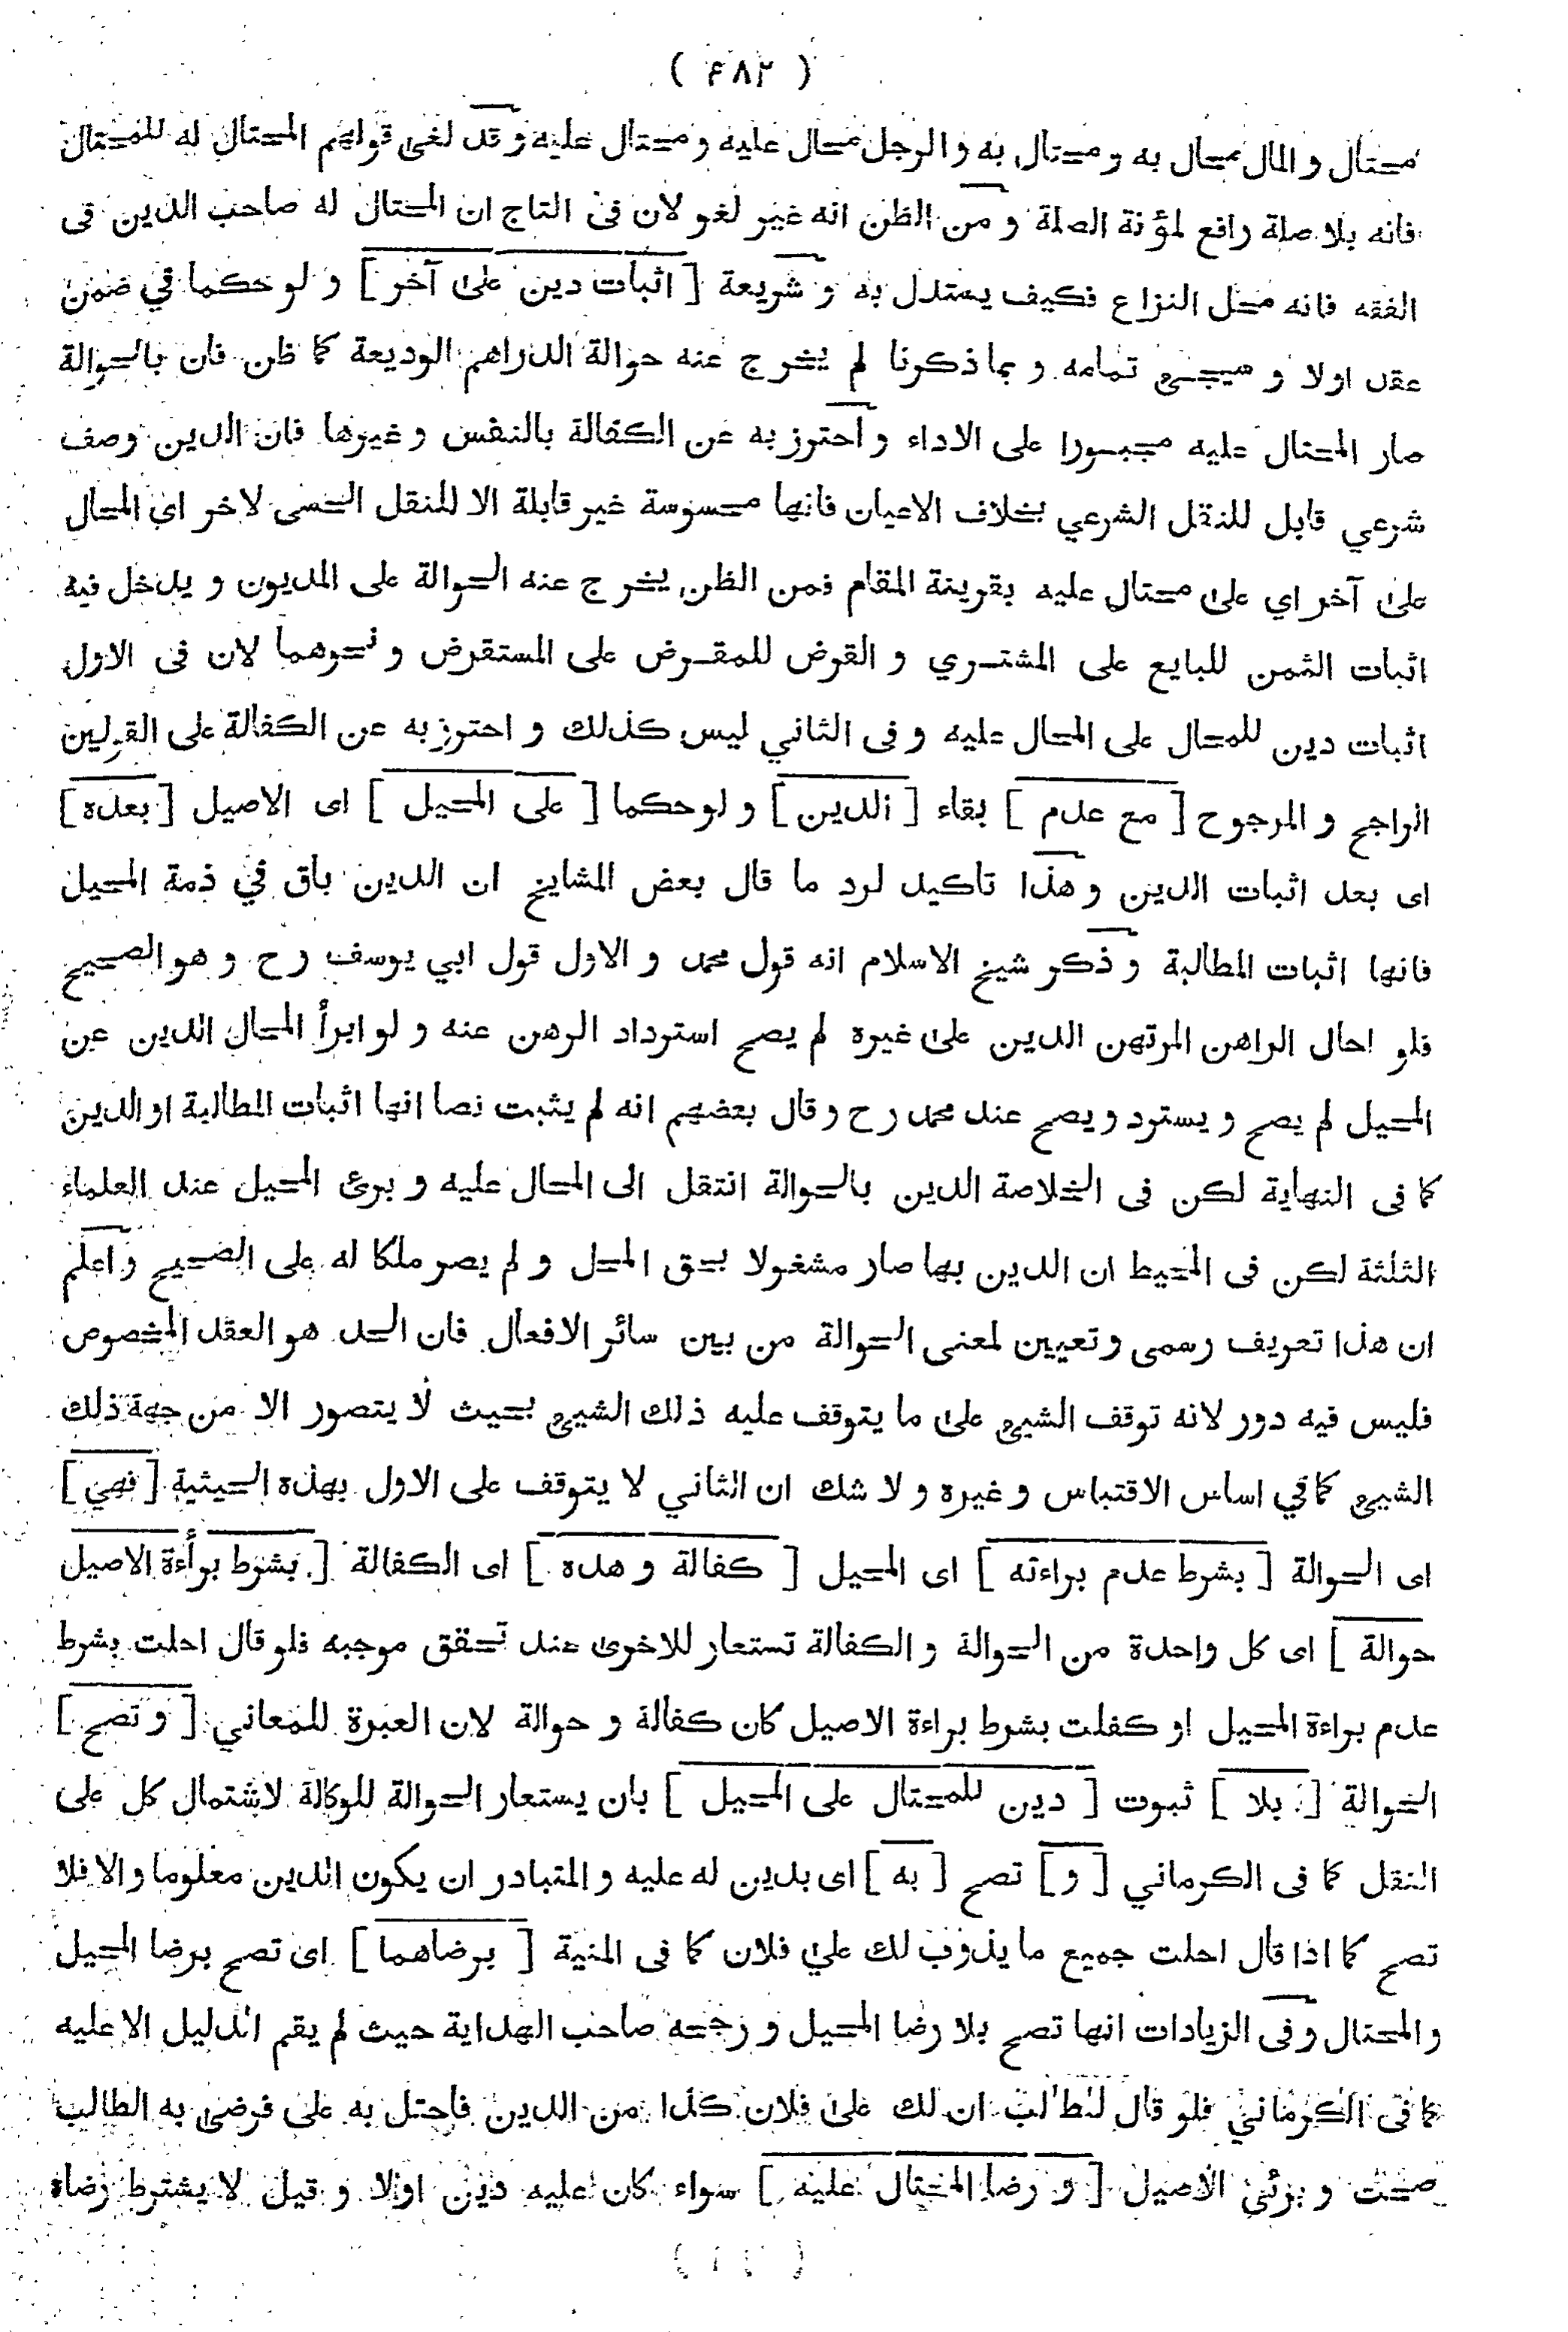 ( ۴۸۲ )
محتال و المال محال به و محتال به و الرجل محال عليه و محتال عليه و قد لغى قولهم المحتال له للمحتال
فانه بلا صلة رافع لمؤنة الصلة و من الظن انه غير لغو لان فى التاج ان المحتال له صاحب الدين فى
الفقه فانه محل النزاع فكيف يستدل به و شريعة [ اثبات دين على آخر ] و لو حكما في ضمن
عقد اولا و سيجىء تمامه و بما ذكرنا لم يخرج عنه حوالة الدراهم الوديعة كما ظن فان بالحوالة
صار المحتال عليه مجبورا على الاداء و احترز به عن الكفالة بالنفس و غيرها فان الدين وصف
شرعي قابل للنقل الشرعي بخلاف الاعيان فانها محسوسة غير قابلة الا للنقل الحسى لاخر اى المحال
على آخر اي على محتال عليه بقرينة المقام فمن الظن يخرج عنه الحوالة على المديون و يدخل فيه
اثبات الثمن للبايع على المشتري و القرض للمقرض على المستقرض و نحوهما لان فى الاول
اثبات دين للمحال على المحال عليه و فى الثاني ليس كذلك و احترز به عن الكفالة على القولين
الراجح و المرجوح [ مع عدم ] بقاء [ الدين ] و لو حكما [ على المحيل ] اى الاصيل [ بعده ]
اى بعد اثبات الدين و هذا تاكيد لرد ما قال بعض المشايخ ان الدين باق في ذمة المحيل
فانها اثبات المطالبة و ذكر شيخ الاسلام انه قول محمد و الاول قول ابي يوسف رح و هو الصحيح
فلو احال الراهن المرتهن الدين على غيره لم يصح استرداد الرهن عنه و لو ابرأ المحال الدين عن
المحيل لم يصح و يسترد و يصح عند محمد رح و قال بعضهم انه لم يثبت نصا انها اثبات المطالبة او الدين
كما فى النهاية لكن فى الخلاصة الدين بالحوالة انتقل الى المحال عليه و برئ المحيل عند العلماء
الثلثة لكن فى المحيط ان الدين بها صار مشغولا بحق المحل و لم يصر ملكا له على الصحيح و اعلم
ان هذا تعريف رسمى و تعيين لمعنى الحوالة من بين سائر الافعال فان الحد هو العقد المخصوص
فليس فيه دور لانه توقف الشىء على ما يتوقف عليه ذلك الشىء بحيث لا يتصور الا من جهة ذلك
الشىء كما في اساس الاقتباس و غيره و لا شك ان الثاني لا يتوقف على الاول بهذه الحيثية [ فهي ]
اى الحوالة [ بشرط عدم براءته ] اى المحيل [ كفالة و هذه ] اى الكفالة [ بشرط برأءة الاصيل
حوالة ] اى كل واحدة من الحوالة و الكفالة تستعار للاخرى عند تحقق موجبه فلو قال احلت بشرط
عدم براءة المحيل او كفلت بشرط براءة الاصيل كان كفالة و حوالة لان العبرة للمعاني [ و تصح ]
الحوالة [ بلا ] ثبوت [ دين للمحتال على المحيل ] بان يستعار الحوالة للوكالة لاشتمال كل على
النقل كما فى الكرماني [ و ] تصح [ به ] اى بدين له عليه و المتبادر ان يكون الدين معلوما و الا فلا
تصح كما اذا قال احلت جميع ما يذوب لك علي فلان كما فى المنية [ برضاهما ] اى تصح برضا المحيل
و المحتال و فى الزيادات انها تصح بلا رضا المحيل و رجحه صاحب الهداية حيث لم يقم الدليل الا عليه
كما فى الكرماني فلو قال لطالب ان لك على فلان كذا من الدين فاحتل به على فرضى به الطالب
صحت و برئ الاصيل [ و رضا المحتال عليه ] سواء كان عليه دين اولا و قيل لا يشترط رضاه